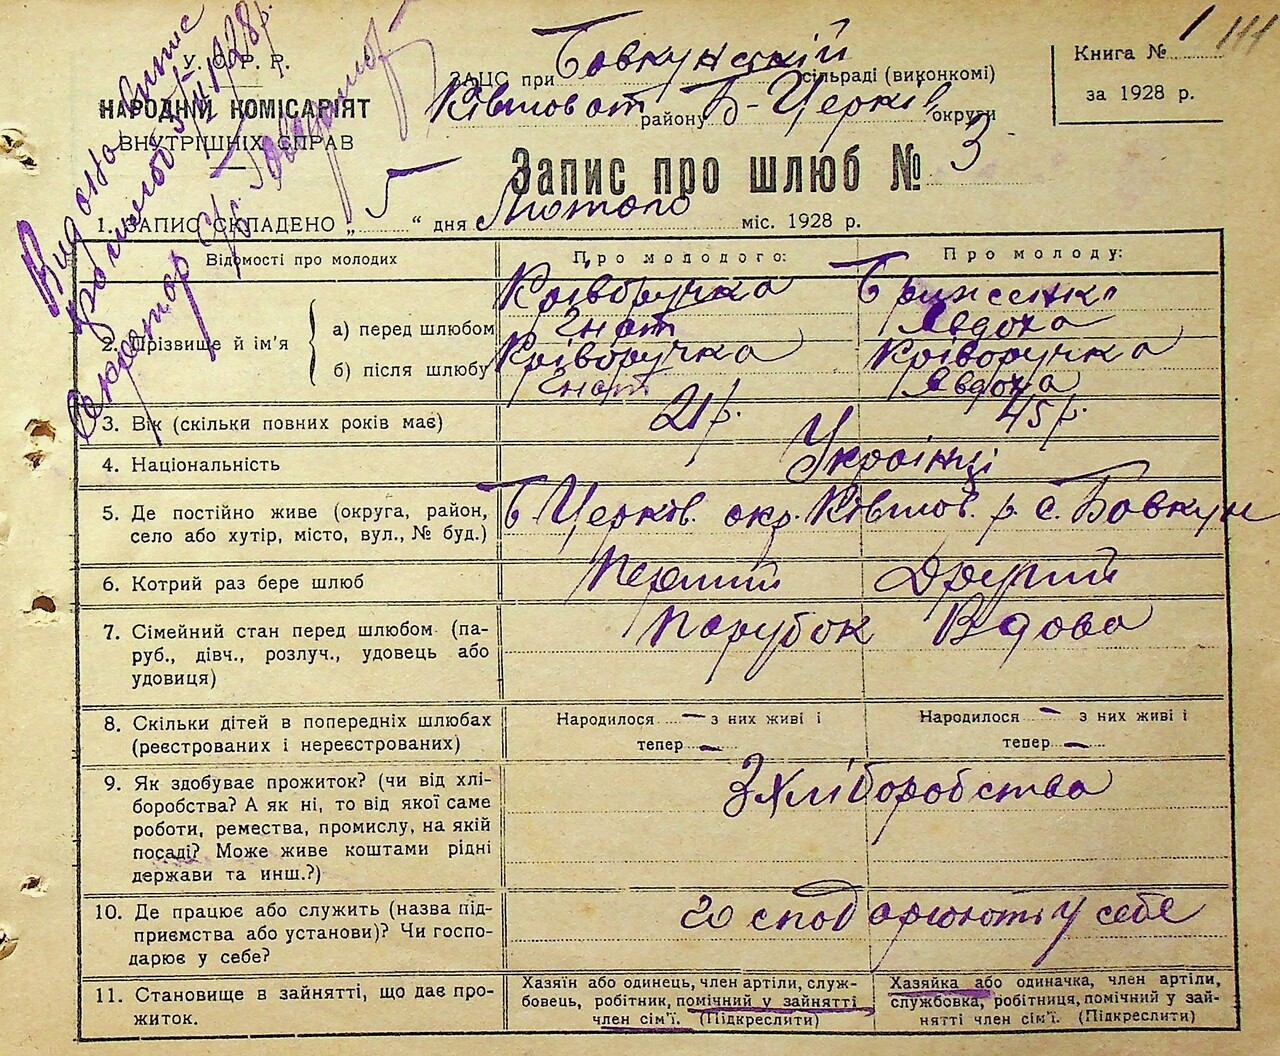 У. С. Р. Р.
НАРОДНІЙ КОМІСАРІЯТ
ВНУТРІШНІХ СПРАВ
Видана випис
про шлюб 5/II 1928 р.
Секретар С/р.
ЗАЦС при Бовкунскій сільраді (виконкомі)
Ківшоват району Б-Церків округи
Книга № 1
за 1928 р.
111
Запис про шлюб № 3
1. ЗАПИС СКЛАДЕНО „ 5 “ дня Лютого міс. 1928 р.
Відомості про молодих
Про молодого:
Про молоду:
2. Прізвище й ім'я
а) перед шлюбом
Кріворучка
Гнат
Явдоха
б) після шлюбу
Кріворучка
Гнат
Кріворучка
Явдоха
3. Вік (скільки повних років має)
21 р.
45 р.
4. Національність
Українці
5. Де постійно живе (округа, район,
село або хутір, місто, вул., № буд.)
Б Церків. окр. Ківшов. р. с. Бовкун
6. Котрий раз бере шлюб
Перший
Другий
7. Сімейний стан перед шлюбом (па-
руб., дівч., розлуч., удовець або
удовиця)
Парубок
Вдова
8. Скільки дітей в попередніх шлюбах
(реєстрованих і нереєстрованих)
Народилося — з них живі і
тепер —
Народилося — з них живі і
тепер —
9. Як здобуває прожиток? (чи від хлі-
боробства? А як ні, то від якої саме
роботи, ремества, промислу, на якій
посаді? Може живе коштами рідні
держави та инш.?)
З хліборобства
10. Де працює або служить (назва під-
приємства або установи)? Чи госпо-
дарює у себе?
господарюють у себе
11. Становище в зайнятті, що дає про-
житок.
Хазяїн або одинець, член артіли, служ-
бовець, робітник, помічний у зайнятті
член сім'ї. (Підкреслити)
Хазяйка або одиначка, член артіли,
службовка, робітниця, помічний у зай-
нятті член сім'ї. (Підкреслити)